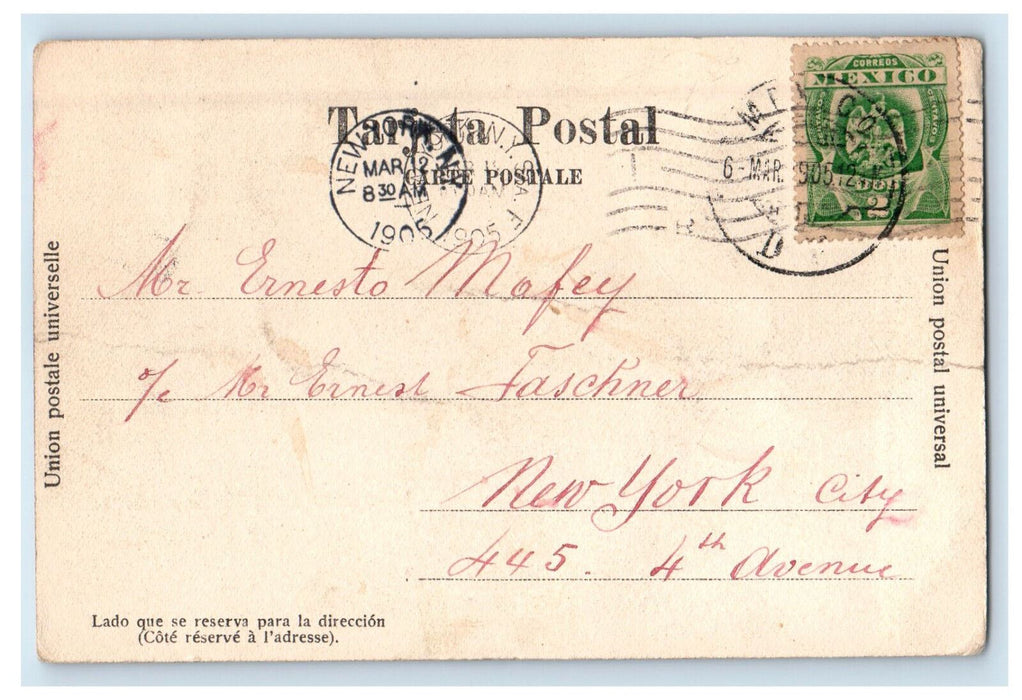 Tarjeta Postal
CARTE POSTALE
NEW YORK, N.Y.
MAR 12
8 30 AM
1905
N.Y. P.A.F.
1905
CORREOS
MEXICO
CENTAVO
MEXICO
6 - MAR. 1905.12
Mr. Ernesto Mafey
c/o Mr Ernest Faschner
New York City
445. 4th Avenue
Union postale universelle
Union postal universal
Lado que se reserva para la dirección
(Côté réservé à l'adresse).